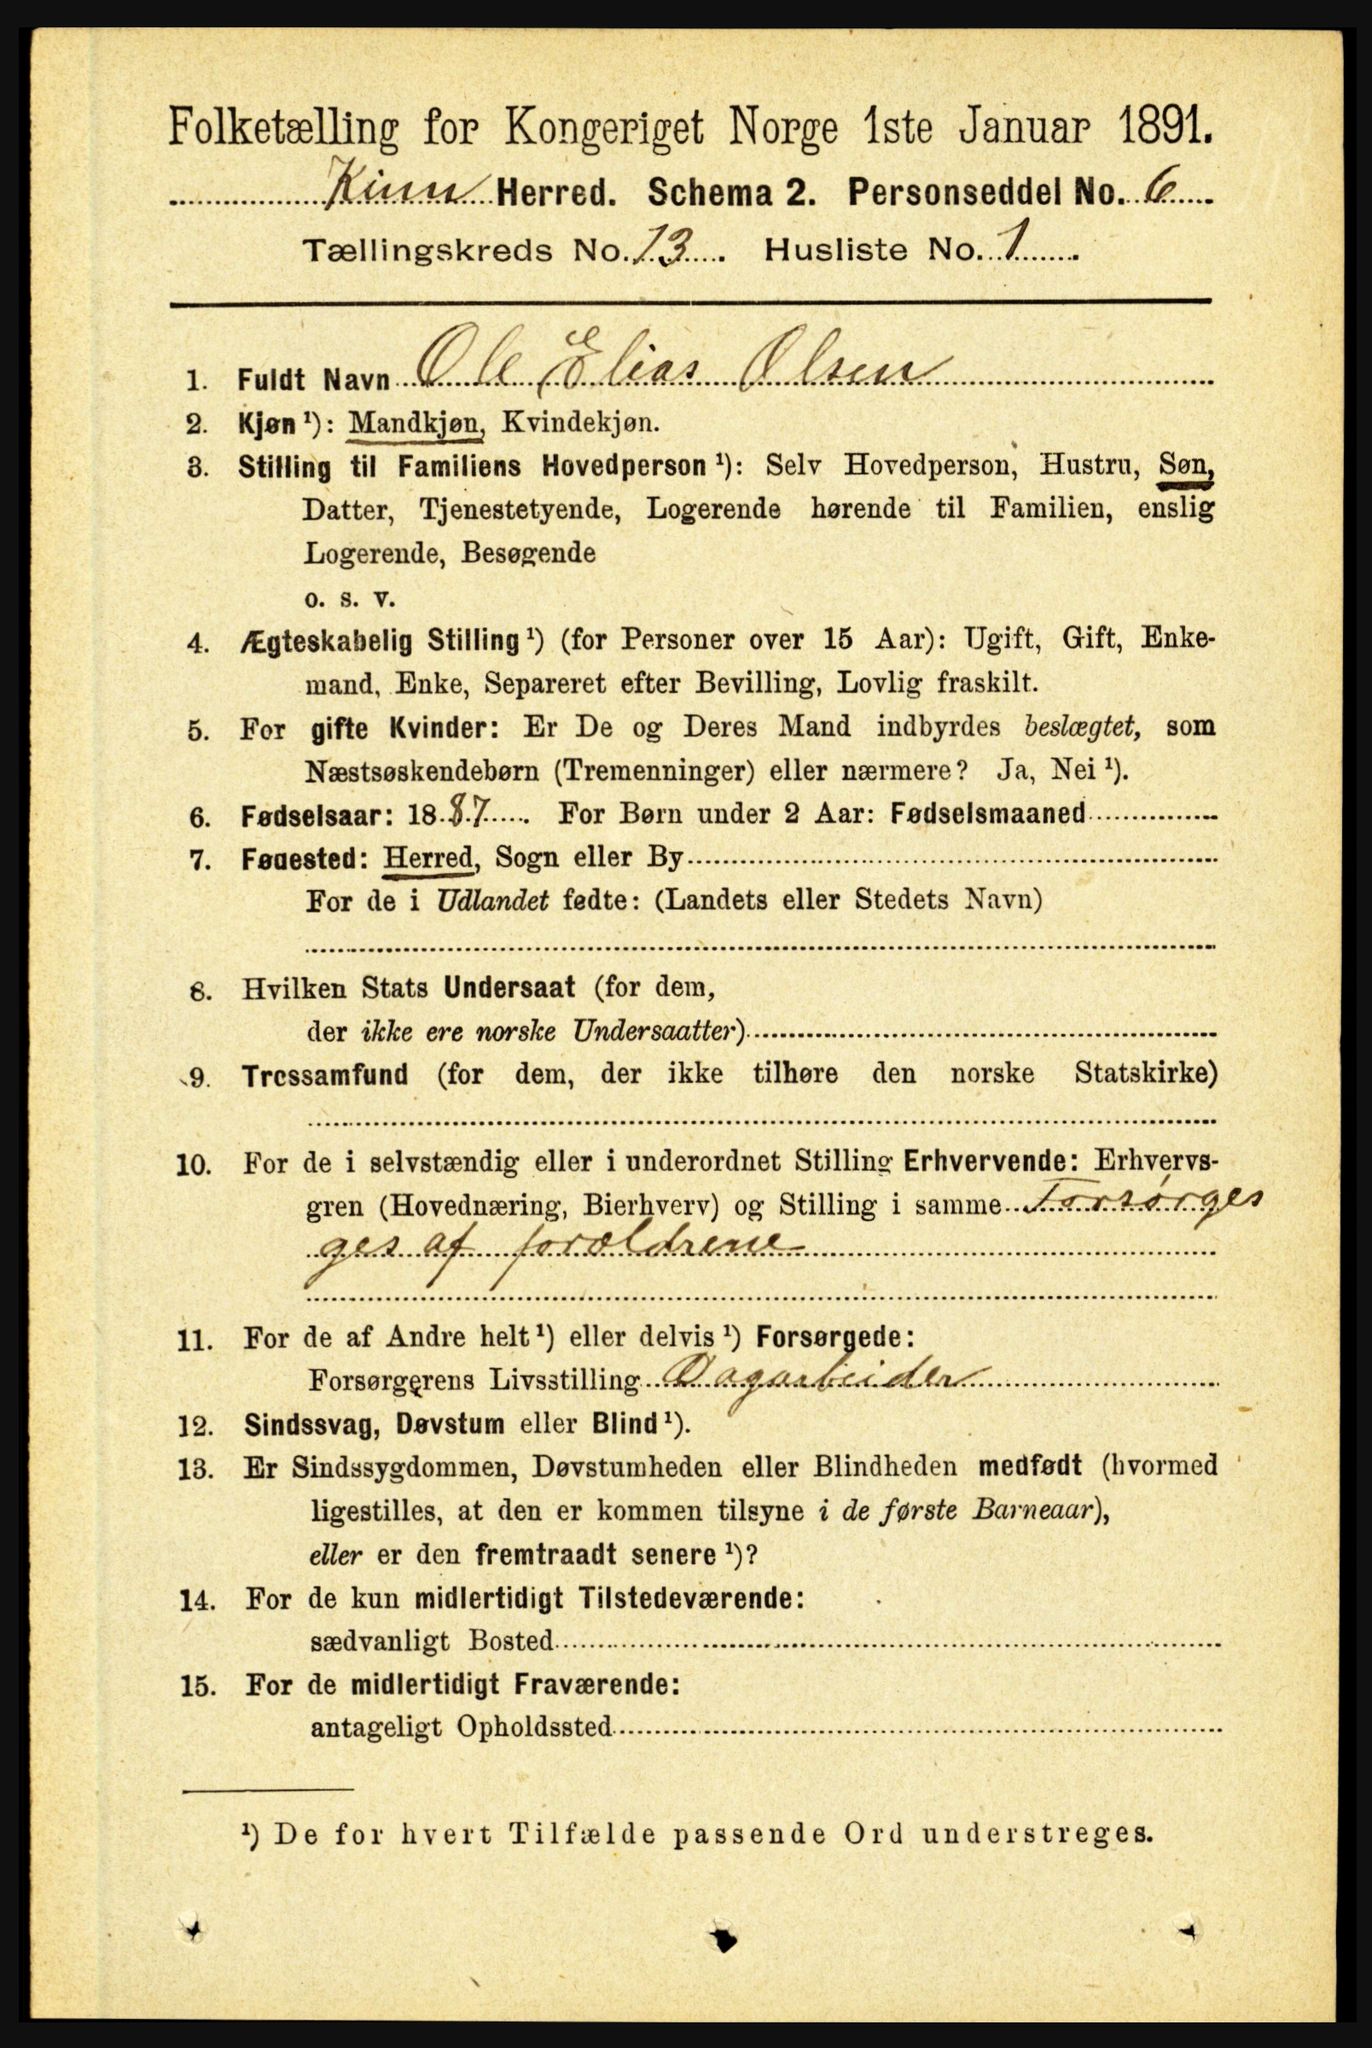 Folketælling for Kongeriget Norge 1ste Januar 1891.
Kinn Herred. Schema 2. Personseddel No. 6
Tællingskreds No. 13. Husliste No. 1
1. Fuldt Navn Ole Elias Olsen
2. Kjøn ¹): Mandkjøn, Kvindekjøn.
3. Stilling til Familiens Hovedperson ¹): Selv Hovedperson, Hustru, Søn,
Datter, Tjenestetyende, Logerende hørende til Familien, enslig
Logerende, Besøgende
o. s. v.
4. Ægteskabelig Stilling ¹) (for Personer over 15 Aar): Ugift, Gift, Enke-
mand, Enke, Separeret efter Bevilling, Lovlig fraskilt.
5. For gifte Kvinder: Er De og Deres Mand indbyrdes beslægtet, som
Næstsøskendebørn (Tremenninger) eller nærmere? Ja, Nei ¹).
6. Fødselsaar: 1887. For Børn under 2 Aar: Fødselsmaaned
7. Fødested: Herred, Sogn eller By
For de i Udlandet fødte: (Landets eller Stedets Navn)
8. Hvilken Stats Undersaat (for dem,
der ikke ere norske Undersaatter)
9. Trossamfund (for dem, der ikke tilhøre den norske Statskirke)
10. For de i selvstændig eller i underordnet Stilling Erhvervende: Erhvervs-
gren (Hovednæring, Bierhverv) og Stilling i samme Forsørges
ges af forældrene
11. For de af Andre helt ¹) eller delvis ¹) Forsørgede:
Forsørgerens Livsstilling Dagarbeider
12. Sindssvag, Døvstum eller Blind ¹).
13. Er Sindssygdommen, Døvstumheden eller Blindheden medfødt (hvormed
ligestilles, at den er kommen tilsyne i de første Barneaar),
eller er den fremtraadt senere ¹)?
14. For de kun midlertidigt Tilstedeværende:
sædvanligt Bosted
15. For de midlertidigt Fraværende:
antageligt Opholdssted
¹) De for hvert Tilfælde passende Ord understreges.